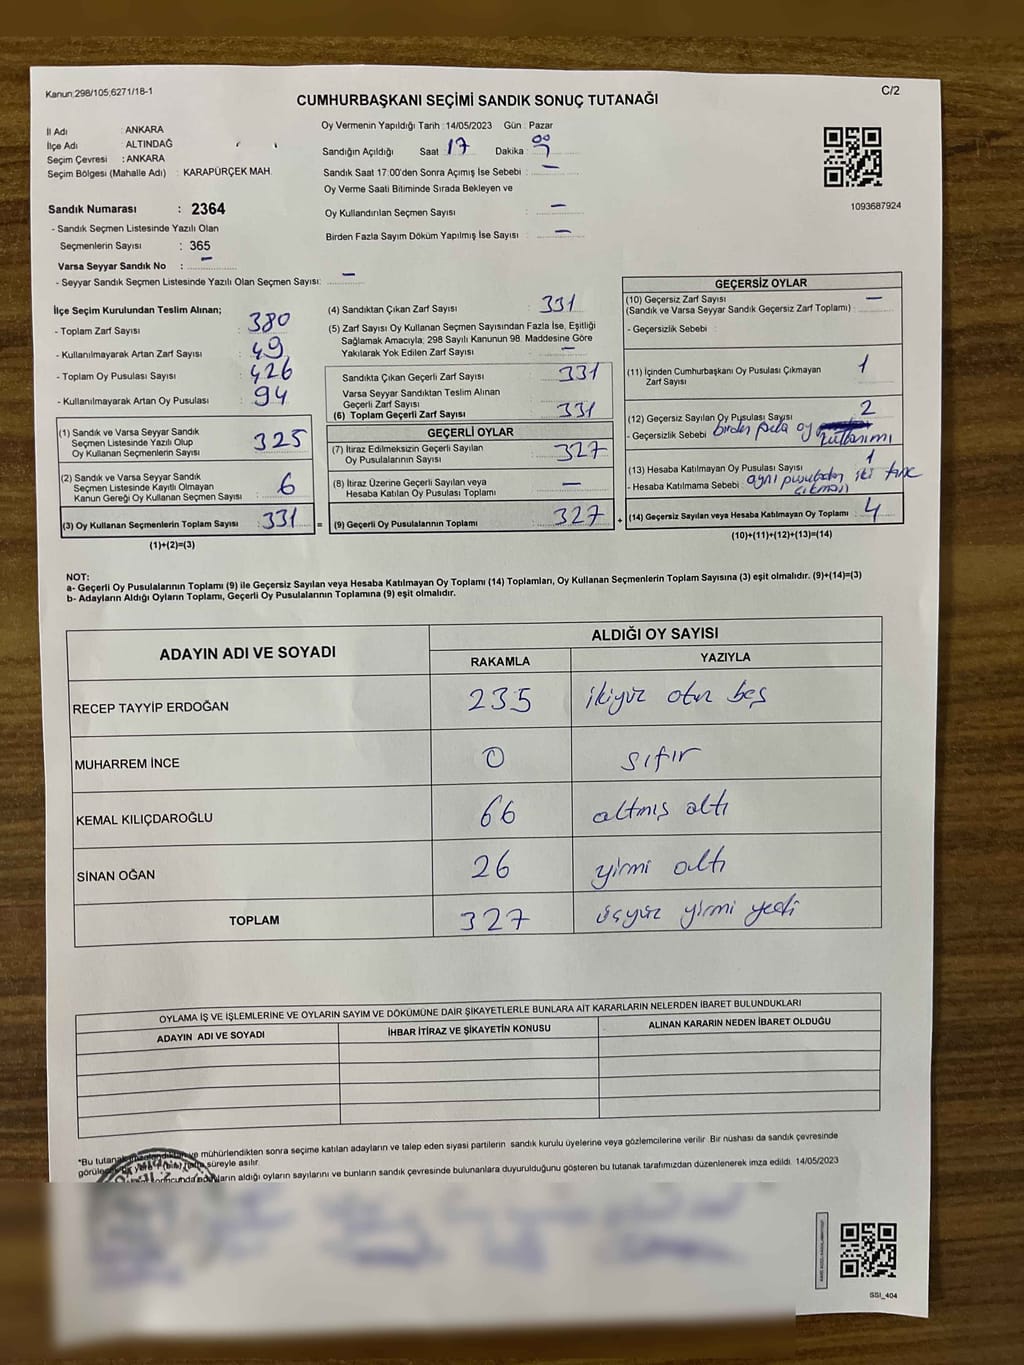 Kanun:298/105;6271/18-1
C/2
CUMHURBAŞKANI SEÇİMİ SANDIK SONUÇ TUTANAĞI
İl Adı : ANKARA
İlçe Adı : ALTINDAĞ
Seçim Çevresi : ANKARA
Seçim Bölgesi (Mahalle Adı) : KARAPÜRÇEK MAH.
Oy Vermenin Yapıldığı Tarih :14/05/2023 Gün : Pazar
Sandığın Açıldığı Saat : 17 Dakika :
Sandık Saat 17:00'den Sonra Açımış İse Sebebi : —
Oy Verme Saati Bitiminde Sırada Bekleyen ve
Oy Kullandırılan Seçmen Sayısı : —
Birden Fazla Sayım Döküm Yapılmış İse Sayısı : —
1093687924
Sandık Numarası : 2364
- Sandık Seçmen Listesinde Yazılı Olan
Seçmenlerin Sayısı : 365
Varsa Seyyar Sandık No : —
- Seyyar Sandık Seçmen Listesinde Yazılı Olan Seçmen Sayısı: —
İlçe Seçim Kurulundan Teslim Alınan;
- Toplam Zarf Sayısı : 380
- Kullanılmayarak Artan Zarf Sayısı : 49
- Toplam Oy Pusulası Sayısı : 426
- Kullanılmayarak Artan Oy Pusulası : 94
(1) Sandık ve Varsa Seyyar Sandık
Seçmen Listesinde Yazılı Olup
Oy Kullanan Seçmenlerin Sayısı : 325
(2) Sandık ve Varsa Seyyar Sandık
Seçmen Listesinde Kayıtlı Olmayan
Kanun Gereği Oy Kullanan Seçmen Sayısı : 6
(3) Oy Kullanan Seçmenlerin Toplam Sayısı : 331 =
(1)+(2)=(3)
(4) Sandıktan Çıkan Zarf Sayısı : 331
(5) Zarf Sayısı Oy Kullanan Seçmen Sayısından Fazla İse, Eşitliği
Sağlamak Amacıyla; 298 Sayılı Kanunun 98. Maddesine Göre
Yakılarak Yok Edilen Zarf Sayısı : —
Sandıkta Çıkan Geçerli Zarf Sayısı : 331
Varsa Seyyar Sandıktan Teslim Alınan
Geçerli Zarf Sayısı :
(6) Toplam Geçerli Zarf Sayısı : 331
GEÇERLİ OYLAR
(7) İtiraz Edilmeksizin Geçerli Sayılan
Oy Pusulalarının Sayısı : 327
(8) İtiraz Üzerine Geçerli Sayılan veya
Hesaba Katılan Oy Pusulası Toplamı : —
(9) Geçerli Oy Pusulalarının Toplamı : 327 +
GEÇERSİZ OYLAR
(10) Geçersiz Zarf Sayısı —
(Sandık ve Varsa Seyyar Sandık Geçersiz Zarf Toplamı) :
- Geçersizlik Sebebi :
(11) İçinden Cumhurbaşkanı Oy Pusulası Çıkmayan 1
Zarf Sayısı
(12) Geçersiz Sayılan Oy Pusulası Sayısı 2
- Geçersizlik Sebebi birden fazla oy kullanımı
(13) Hesaba Katılmayan Oy Pusulası Sayısı 1
- Hesaba Katılmama Sebebi : aynı pusuladan iki tane
çıkması
(14) Geçersiz Sayılan veya Hesaba Katılmayan Oy Toplamı : 4
(10)+(11)+(12)+(13)=(14)
NOT:
a- Geçerli Oy Pusulalarının Toplamı (9) ile Geçersiz Sayılan veya Hesaba Katılmayan Oy Toplamı (14) Toplamları, Oy Kullanan Seçmenlerin Toplam Sayısına (3) eşit olmalıdır. (9)+(14)=(3)
b- Adayların Aldığı Oyların Toplamı, Geçerli Oy Pusulalarının Toplamına (9) eşit olmalıdır.
ADAYIN ADI VE SOYADI
ALDIĞI OY SAYISI
RAKAMLA YAZIYLA
RECEP TAYYİP ERDOĞAN 235 ikiyüz otuz beş
MUHARREM İNCE 0 sıfır
KEMAL KILIÇDAROĞLU 66 altmış altı
SİNAN OĞAN 26 yirmi altı
TOPLAM 327 üçyüz yirmi yedi
OYLAMA İŞ VE İŞLEMLERİNE VE OYLARIN SAYIM VE DÖKÜMÜNE DAİR ŞİKAYETLERLE BUNLARA AİT KARARLARIN NELERDEN İBARET BULUNDUKLARI
ADAYIN ADI VE SOYADI İHBAR İTİRAZ VE ŞİKAYETİN KONUSU ALINAN KARARIN NEDEN İBARET OLDUĞU
*Bu tutanak ve mühürlendikten sonra seçime katılan adayların ve talep eden siyasi partilerin sandık kurulu üyelerine veya gözlemcilerine verilir. Bir nüshası da sandık çevresinde
süreyle asılır.
aldığı oyların sayılarını ve bunların sandık çevresinde bulunanlara duyurulduğunu gösteren bu tutanak tarafımızdan düzenlenerek imza edildi. 14/05/2023
SSI_404